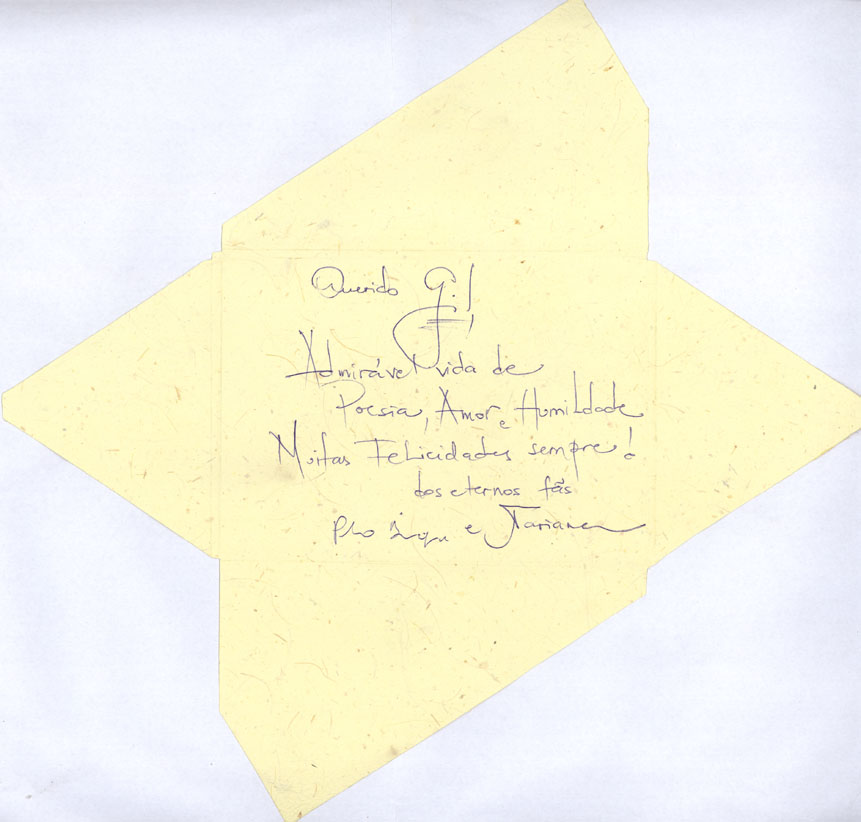 Querido G.!
Admirável vida de
Poesia, Amor e Humildade
Muitas Felicidades sempre!
dos eternos fãs
e Mariana